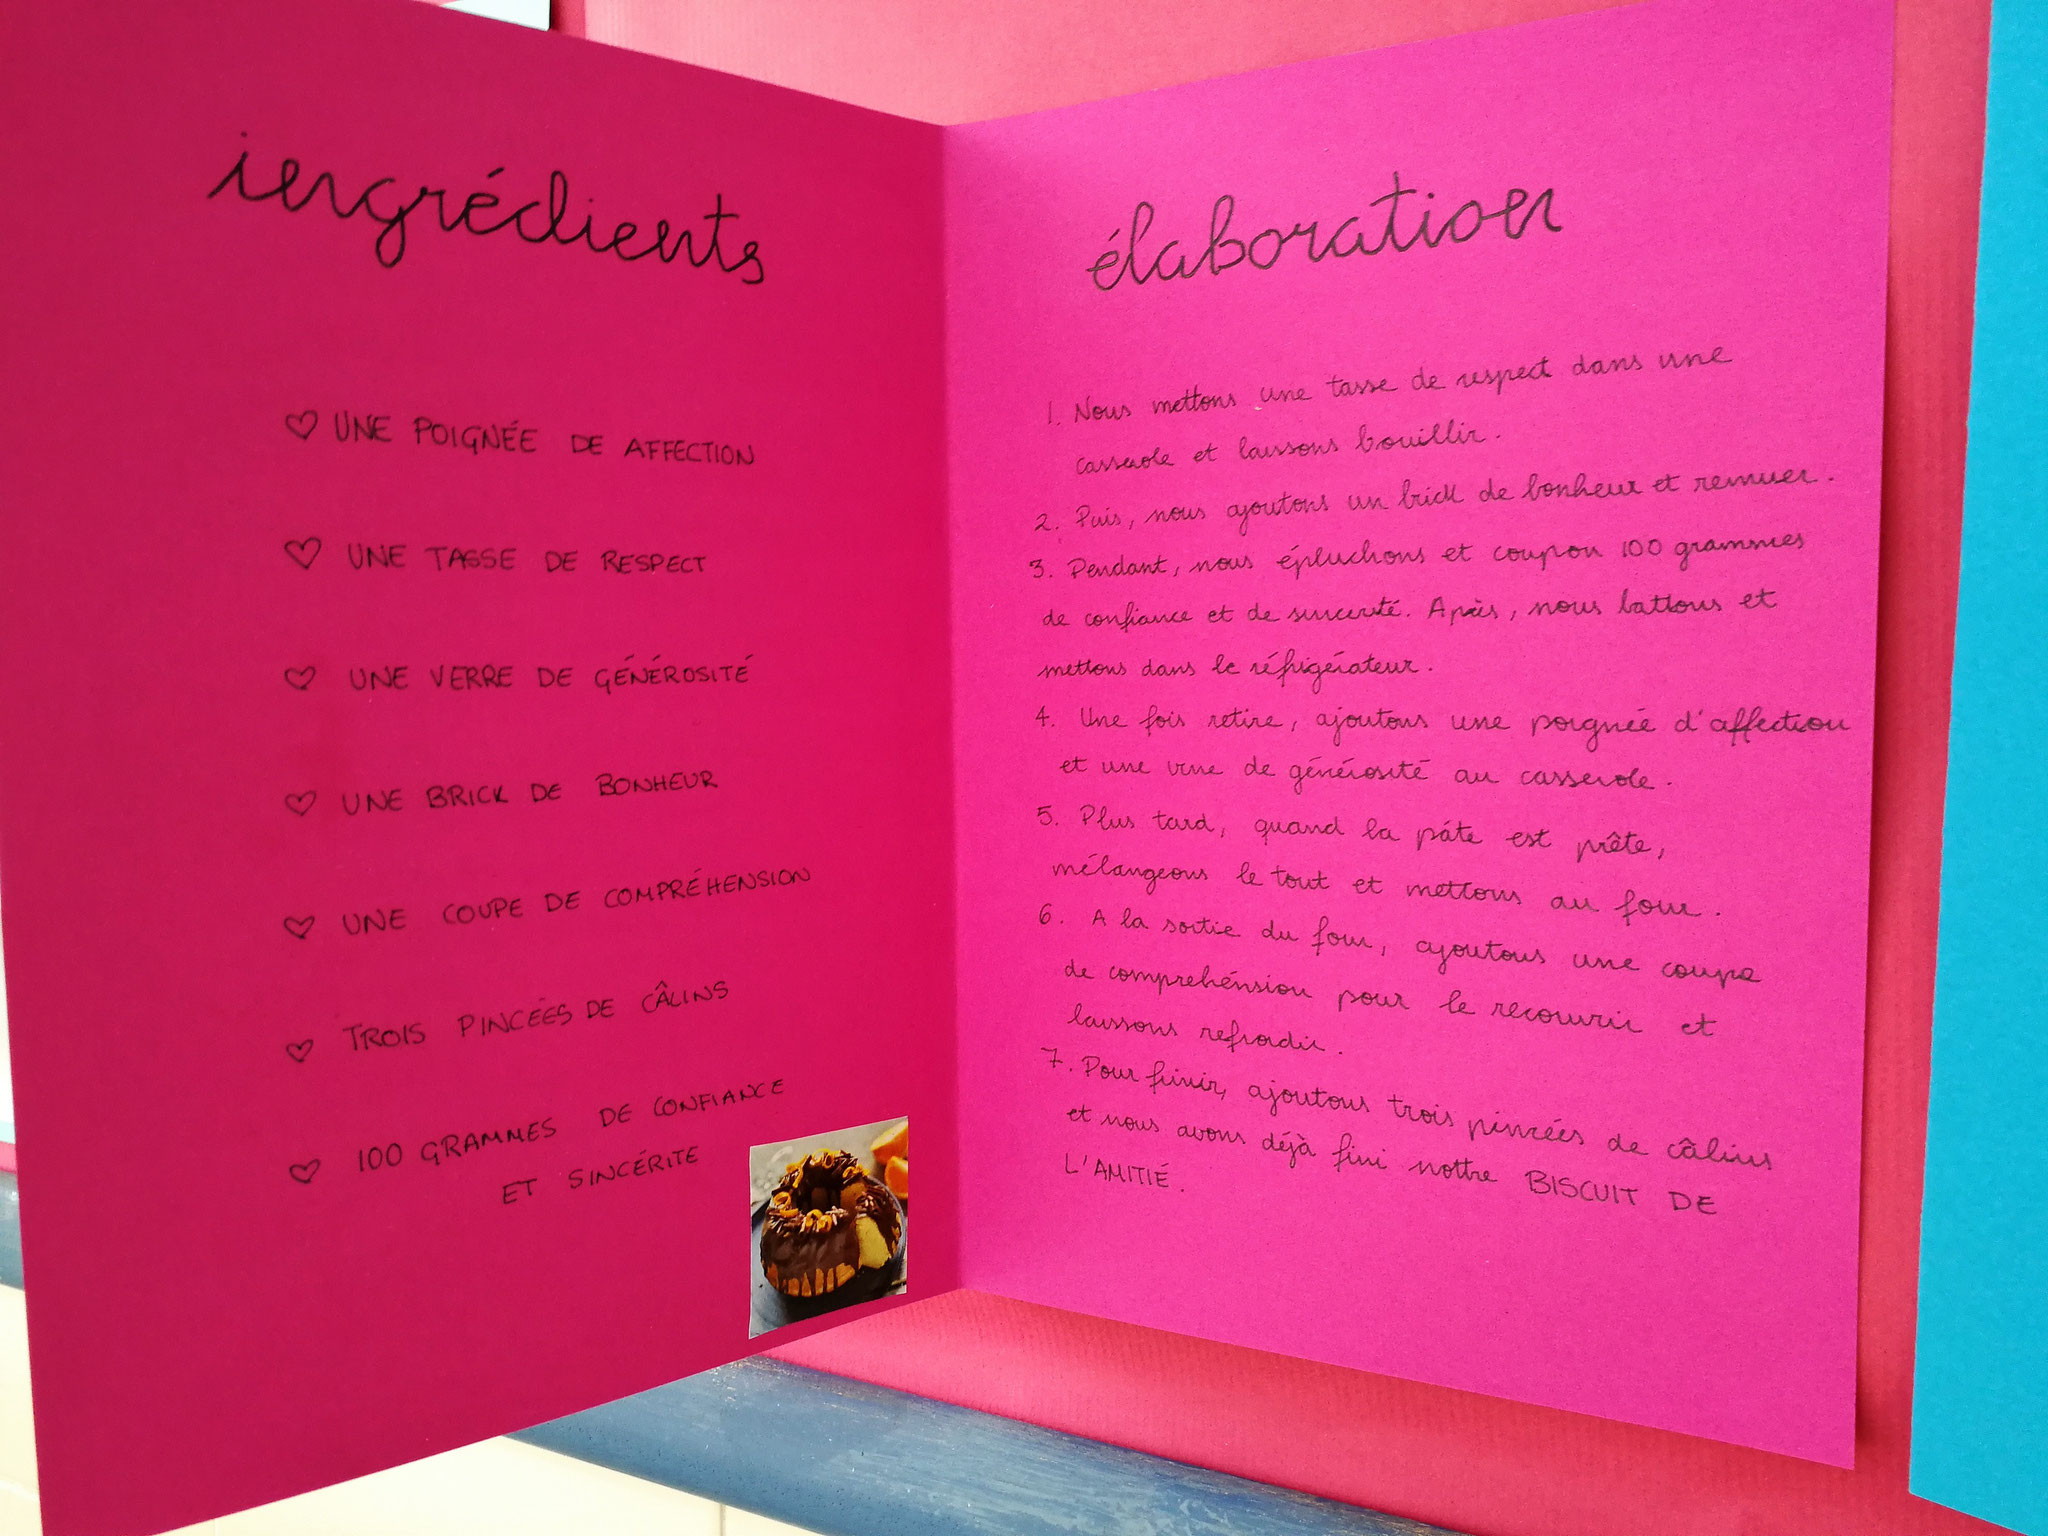 ingrédients
♡ UNE POIGNÉE DE AFFECTION
♡ UNE TASSE DE RESPECT
♡ UNE VERRE DE GÉNÉROSITÉ
♡ UNE BRICK DE BONHEUR
♡ UNE COUPE DE COMPRÉHENSION
♡ TROIS PINCÉES DE CÂLINS
♡ 100 GRAMMES DE CONFIANCE
ET SINCÉRITE
élaboration
1. Nous mettons une tasse de respect dans une
casserole et laissons bouillir.
2. Puis, nous ajoutons un brick de bonheur et remuer.
3. Pendant, nous épluchons et coupon 100 grammes
de confiance et de sincerité. Après, nous battons et
mettons dans le réfrigérateur.
4. Une fois retire, ajoutons une poignée d'affection
et une de générosité au casserole.
5. Plus tard, quand la pâte est prête,
mélangeons le tout et mettons au four.
6. A la sortie du four, ajoutons une coupe
de comprehénsion pour le recouvrir et
laissons refroidir.
7. Pour finir, ajoutons trois pincées de câlins
et nous avons déjà fini nottre BISCUIT DE
L'AMITIÉ.